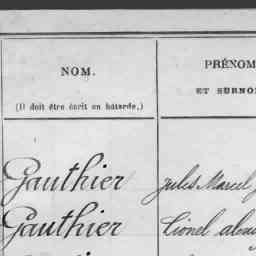 NOM.
(Il doit être écrit en bâtarde.)
PRÉNOM
ET SURNO
Gauthier Jules Marcel
Gauthier Lionel